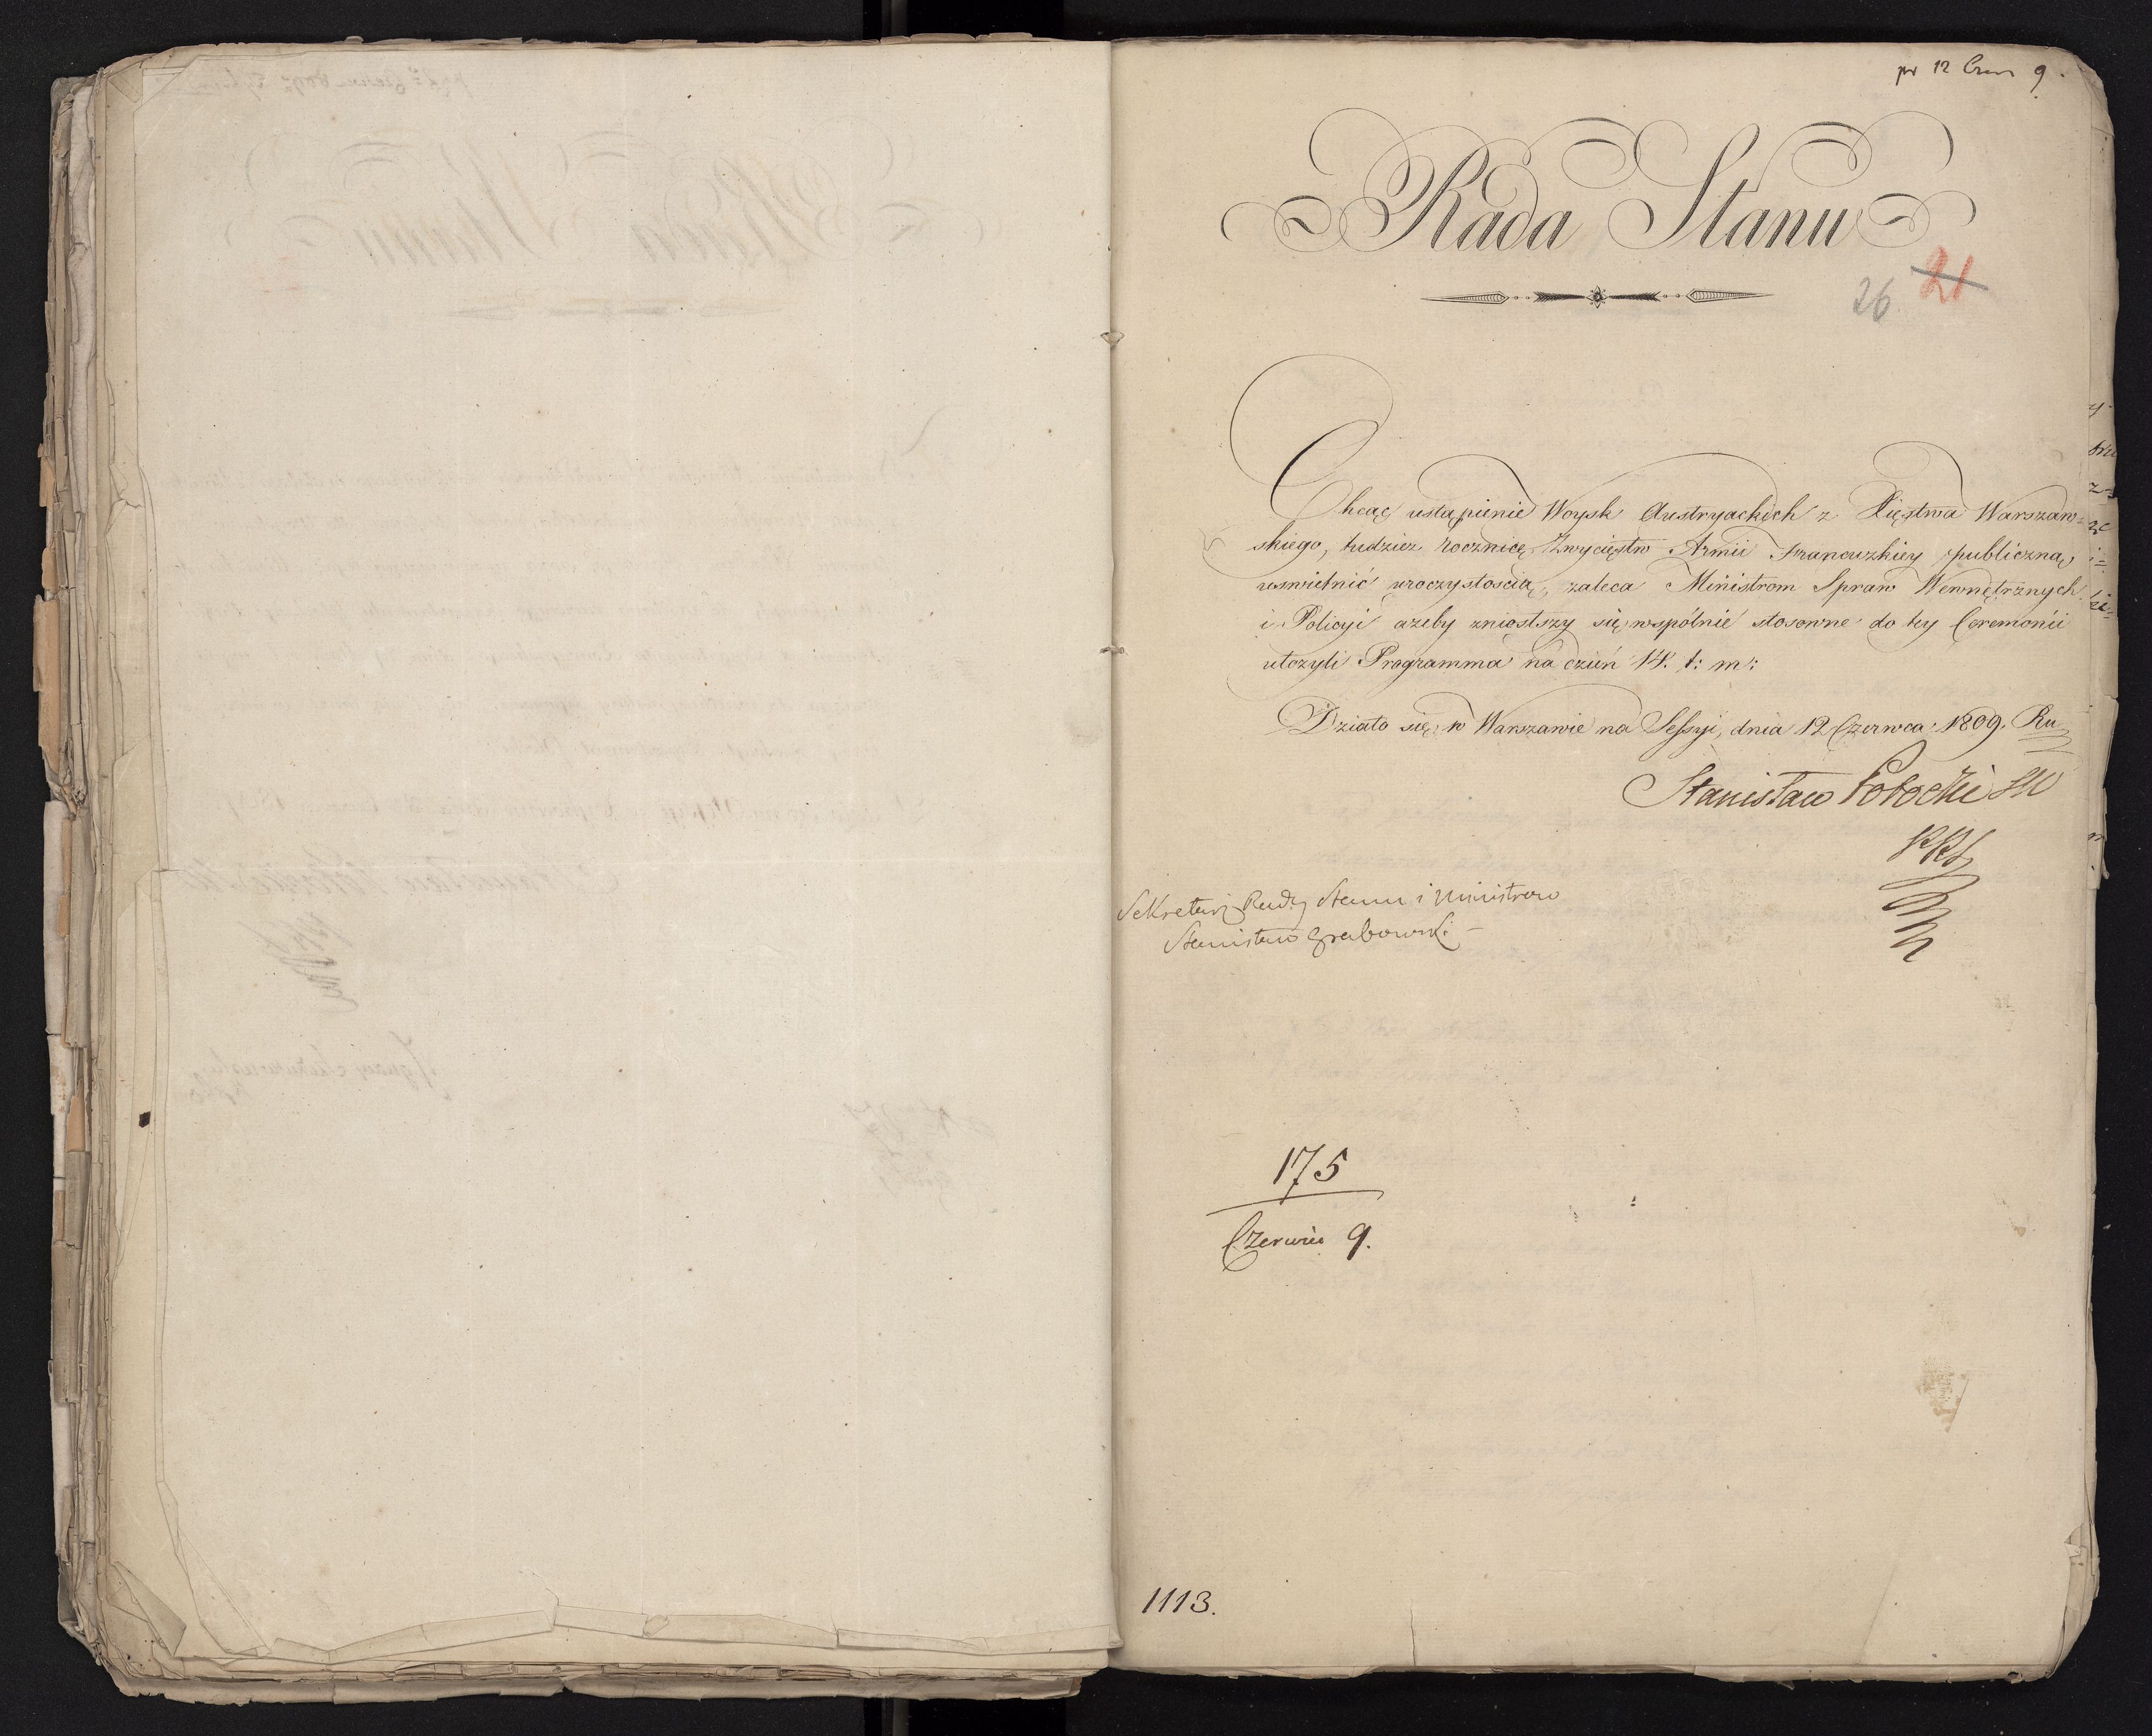 pr 12 Czer 9.
Rada Stanu
26 21
Chcąc ustąpienie Woysk Austryackich z Xięstwa Warszaw-
skiego, tudzież rocznicę Zwycięstw Armii Francuzkiey publiczną
uswietnić uroczystoscią, zaleca Ministrom Spraw Wewnętrznych
i Policyi ażeby zniosłszy się wspólnie stosowne do tey Ceremonii
ułożyli Programma na dzień 14. t: m:
Działo się w Warszawie na Sessyi, dnia 12 Czerwca 1809. Ru
Stanisław Potocki
Sekretarz Rady Stanu i Ministrow
Stanisław Grabowski
175
Czerwiec 9.
1113.